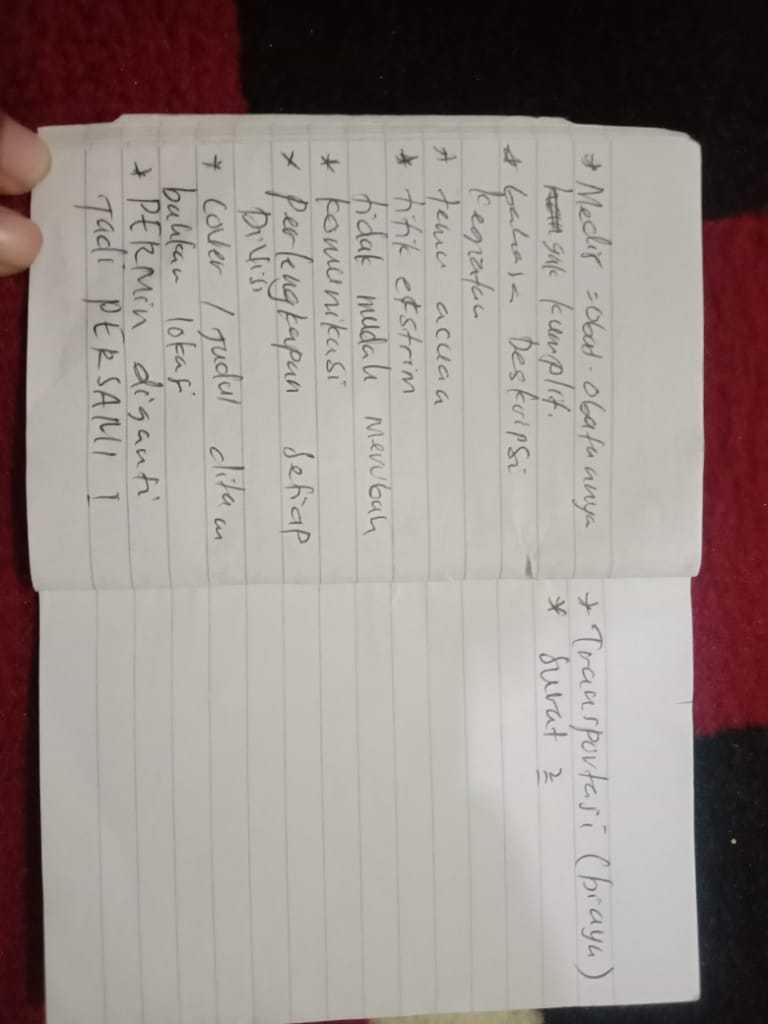 * Medis = obat-obatnanya
gak kumplit.
* bahasa Deskripsi
kegiatan
* temu acuan
* titik ekstrim
tidak mudah merubah
* komunikasi
* Perlengkapan Setiap
Divisi
* cover / Judul ditam
bahkan lokasi
* PERMIN diganti
Jadi PERSAMI I
* Transportasi (biaya)
* Surat 2